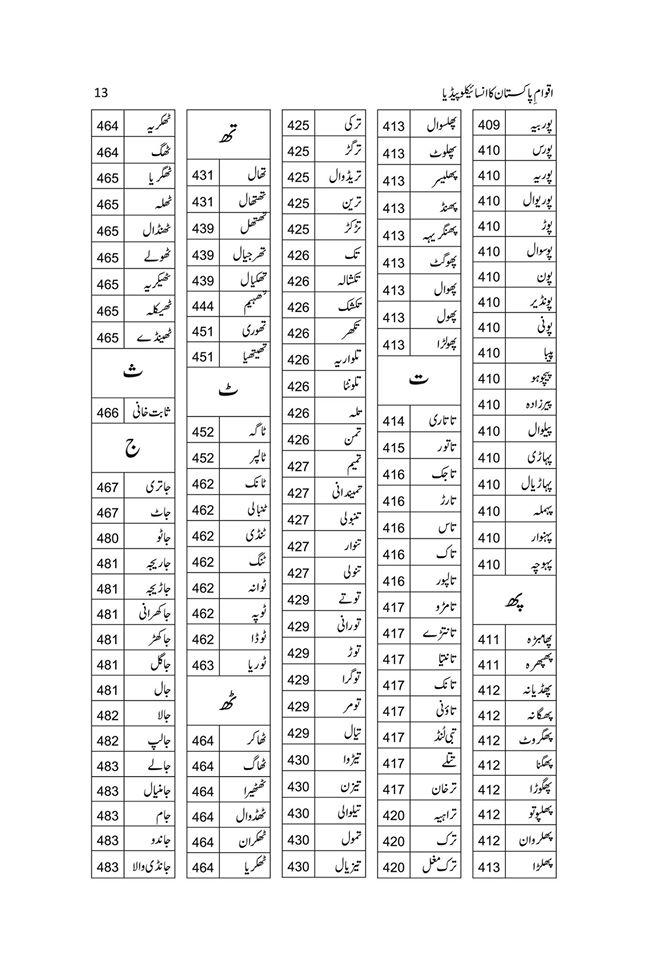 اقوامِ پاکستان کا انسائیکلوپیڈیا 13
پوربیہ 409
پورس 410
پوریہ 410
پوریوال 410
پوڑ 410
پوسوال 410
پون 410
پونڈیر 410
پونی 410
پیپا 410
پیچوہو 410
پیرزادہ 410
پیلوال 410
پہاڑی 410
پہاڑیال 410
پہملہ 410
پہنوار 410
پہوچہ 410
پھ
پھامبڑہ 411
پھپھرہ 411
پھڈیانہ 412
پھگانہ 412
پھگروٹ 412
پھگنا 412
پھگوڑا 412
پھلپوتو 412
پھلروان 412
پھلڑا 413
پھلسوال 413
پھلوٹ 413
پھلیسر 413
پھنڈ 413
پھنگریہہ 413
پھوگٹ 413
پھوال 413
پھول 413
پھولڑا 413
ت
تاتاری 414
تاتور 415
تاجک 416
تارڑ 416
تاس 416
تاک 416
تالپور 416
تامڑو 417
تانترے 417
تانتیا 417
تانک 417
تاؤنی 417
تبی لُنڈ 417
تتلے 417
ترخان 417
تراہیہ 420
ترک 420
ترک مغل 420
ترکی 425
ترگڑ 425
تریڈوال 425
ترین 425
تڑکڑ 425
تک 426
تکشالہ 426
تکشک 426
تکھر 426
تلواریہ 426
تلونٹا 426
تلہ 426
تمن 426
تمیم 427
تمیندانی 427
تنبولی 427
تنوار 427
تنولی 427
توتے 429
تورانی 429
توڑ 429
توگرا 429
تومر 429
تیال 429
تیڑوا 430
تیزن 430
تیلوالی 430
تمول 430
تیزیال 430
تھ
تھال 431
تھتھال 431
تھتھل 439
تھرجیال 439
تھکیال 439
تھہیم 444
تھوری 451
تھیتھیا 451
ٹ
ٹاگہ 452
ٹالپر 452
ٹانک 462
ٹنٹالی 462
ٹنڈی 462
ٹنگ 462
ٹوانہ 462
ٹوپہ 462
ٹوڈا 462
ٹوریا 463
ٹھ
ٹھاکر 464
ٹھاگ 464
ٹھٹھیرا 464
ٹھڈوال 464
ٹھکران 464
ٹھکریا 464
ٹھکریہ 464
ٹھگ 464
ٹھگریا 465
ٹھلہ 465
ٹھنڈال 465
ٹھولے 465
ٹھیکریہ 465
ٹھیکلہ 465
ٹھینڈے 465
ث
ثابت خانی 466
ج
جاتری 467
جاٹ 467
جاٹو 480
جاریجہ 481
جاڑیجہ 481
جاکھرانی 481
جاکھڑ 481
جاگل 481
جال 481
جالا 482
جالپ 482
جالے 483
جامنیال 483
جام 483
جاندو 483
جانڈی والا 483